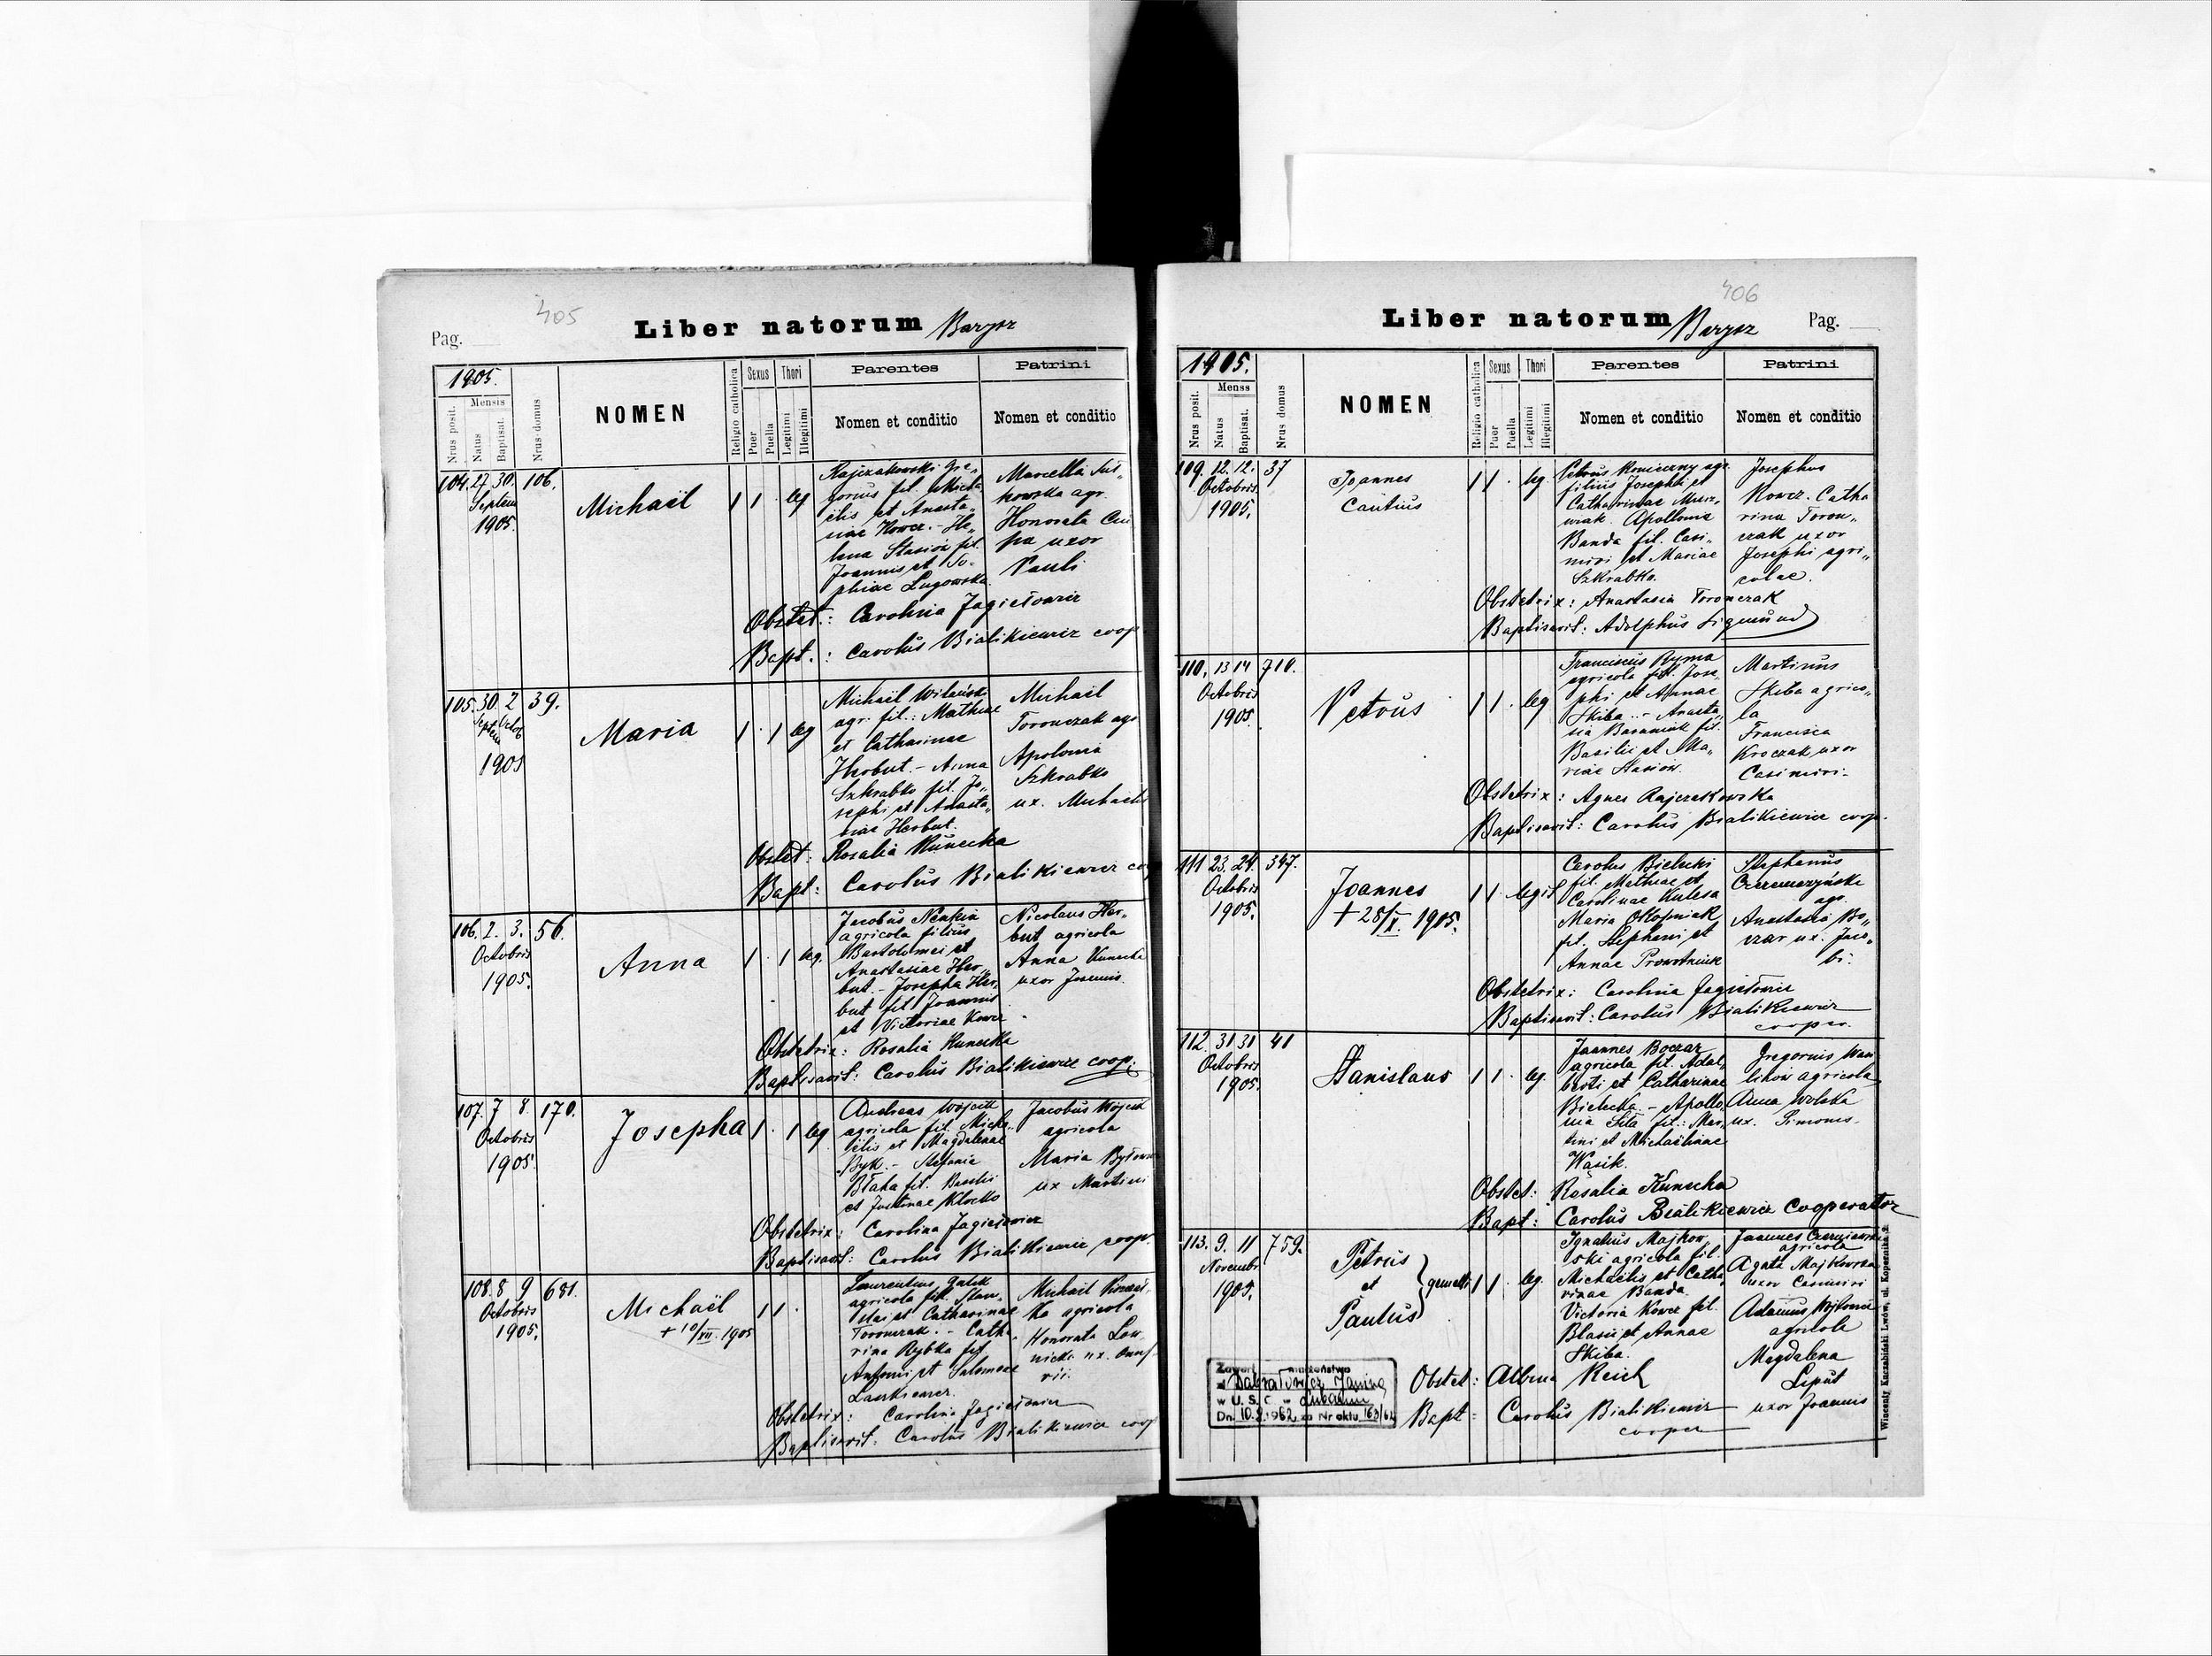 405
Pag.
Liber natorum Barysz
1905.
Mensis
Nrus posit.
Natus
Baptisat.
Nrus domus
NOMEN
Religio catholica
Sexus
Puer
Puella
Thori
Legitimi
Illegitimi
Parentes
Nomen et conditio
Patrini
Nomen et conditio
104. 27 30. 106.
Septem
1905.
Michaël
1 1 leg
Rajczakowski Gre„
gorius fil. Micha
ëlis et Anasta„
siae Kowcz. - He„
lena Stasiów fil.
Joannis et So„
phiae Lugowska.
Marcella Sus„
kowska agr.
Honorata
uxor
Pauli
Obstet.: Carolina Jagiełowicz
Bapt.: Carolus Bialikiewicz coop
105. 30. 2 39.
Septem Octob
1905
Maria
1 1 leg
Michaël Wilański
agr. fil.: Mathiae
et Catharinae
Herbut. - Anna
Szkrabko fil. Jo„
sephi et Anasta„
siae Herbut.
Michaël
Toronczak agr
Apolonia
Szkrabko
ux. Michaelis
Obstet: Rosalia Kunecka
Bapt: Carolus Bialikiewicz
106. 2. 3. 56.
Octobris
1905.
Anna
1 1 leg.
Jacobus Nenkin
agricola filius
Bartolomei et
Anastasiae Her„
but. - Josepha Her„
but fil Joannis
et Victoriae Kowcz
Nicolaus Her„
but agricola
Anna Kunecka
uxor Joannis.
Obstetrix: Rosalia Kunecka
Baptisavit: Carolus Bialikiewicz coop.
107. 7 8. 170.
Octobris
1905.
Josepha
1 1 leg
Andreas Wójcik
agricola fil. Micha„
ëlis et Magdalenae
Byk. - Stefania
Błaha fil. Basilii
et Justinae Klocko
Jacobus Wójcik
agricola
Maria
ux Martini
Obstetrix: Carolina Jagiełowicz
Baptisavit: Carolus Bialikiewicz coop.
108. 8 9 681.
Octobris
1905.
Michaël
+ 10/VII. 1905
1 1
Laurentius Galik
agricola fil. Stani„
slai et Catharinae
Toronczak. - Catha„
rina Rybka fil.
Antonii et Salomeae
Ławkiewicz.
Michaël
ko agricola
Honorata
nicka ux. Onuf„
rii.
Obstetrix: Carolina Jagiełowicz
Baptisavit: Carolus Bialikiewicz coop
406
Liber natorum Barysz
Pag.
1905.
Menss
Nrus posit.
Natus
Baptisat.
Nrus domus
NOMEN
Religio catholica
Sexus
Puer
Puella
Thori
Legitimi
Illegitimi
Parentes
Nomen et conditio
Patrini
Nomen et conditio
109. 12. 12. 37
Octobris
1905.
Joannes
Cantius
1 1 leg.
Petrus Konieczny agr.
filius Josephi et
Catharinae
Apollonia
Banda fil. Casi„
miri et Mariae
Szkrabko.
Josephus
Kowcz. Catha
rina Toron„
czak uxor
Josephi agri„
colae.
Obstetrix: Anastasia Toronczak
Baptisavit: Adolphus Sigmund
110. 13 14 710.
Octobris
1905.
Petrus
1 1 leg
Franciscus Ryma
agricola fil. Jose„
phi et Annae
Skiba. - Anasta„
sia Baraniuk fil.
Basilii et Ma„
riae Stasiów.
Martinus
Skiba agrico„
la
Francisca
Kroczak uxor
Casimiri.
Obstetrix: Agnes Rajczakowska
Baptisavit: Carolus Bialikiewicz coop.
111 23. 24. 347.
Octobris
1905.
Joannes
+ 28/X. 1905.
1 1 legit
Carolus Bielecki
fil. Mathiae et
Carolinae Kulesa
Maria
fil. Stephani et
Annae
Stephanus
agr.
Anastasia Bo„
czar ux. Jaco„
bi.
Obstetrix: Carolina Jagiełowicz
Baptisavit: Carolus Bialikiewicz
cooper.
112. 31 31 41
Octobris
1905.
Stanislaus
1 1 leg.
Joannes Boczar
agricola fil. Adal„
berti et Catharinae
Bielecka. - Apollo„
nia Siła fil.: Mar„
tini et Michaelinae
Wąsik.
Gregorius
agricola
Anna Wolska
ux. Simonis.
Obstet: Rosalia Kunecka
Bapt: Carolus Bialikiewicz Cooperator
113. 9. 11 759.
Novembr
1905.
Petrus
et
Paulus
gemelli
1 1 leg.
Ignatius Majkow„
ski agricola fil.
Michaëlis et Catha„
rinae Banda.
Victoria Kowcz fil.
Blasii et Annae
Skiba.
Joannes
agricola
Agata Majkowska
uxor Casimiri
Adamus Wójtowicz
agricola
Magdalena
Liput
uxor Joannis
Obstet: Albina Reich
Bapt: Carolus Bialikiewicz
cooper
Zawarł małżeństwo
z Janina
w U. S. C. w
Dn. 10.2.1962 za Nr aktu 163/62
Wincenty Kuczabiński Lwów, ul. Kopernika 9.